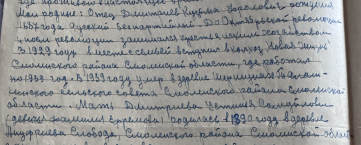 Мои родные: Отец, Дмитриев
1882 года. Русский беспартийный. До Октябрьской революции
и после революции занимался крестьянским хозяйством.
В 1929 году вместе с семьей вступил в колхоз "Новая Жизнь"
Смоленского района Смоленской области, где работал
по 1938 год. В 1939 году умер в деревне
сельского совета Смоленского района Смоленской
области. Мать Дмитриева Устинья
(девичья фамилия Ефремова) родилась в 1890 году в деревне
Слобода, Смоленского района Смоленской